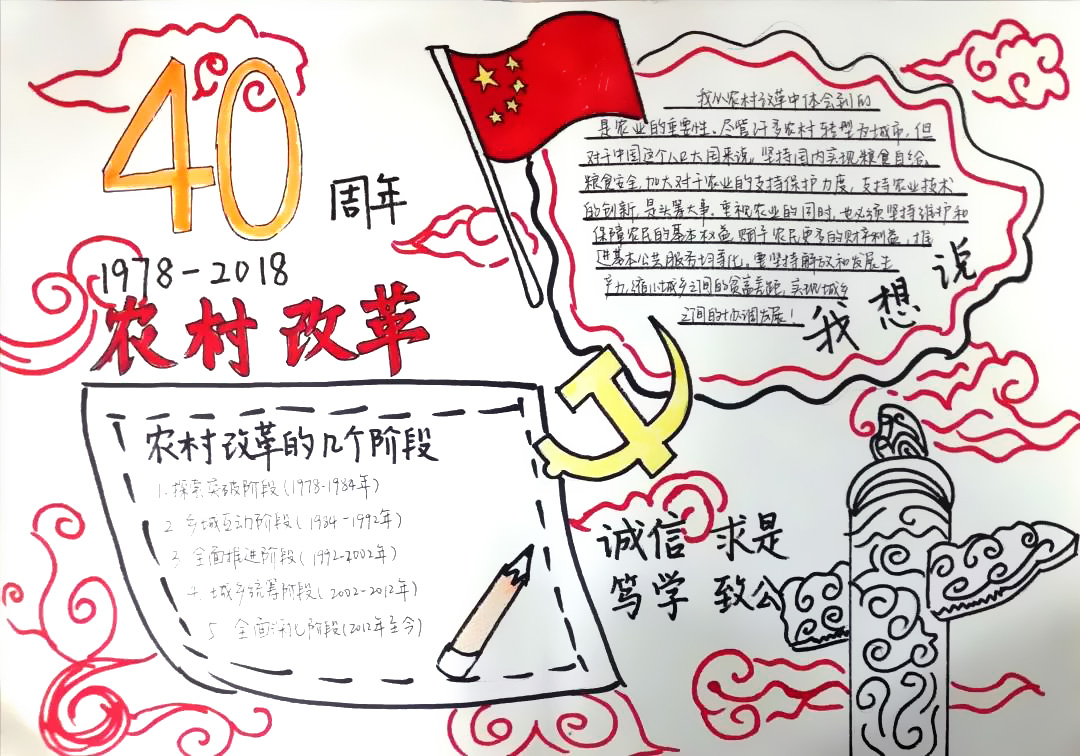 40
周年
1978-2018
农村改革
农村改革的几个阶段
1.探索突破阶段(1978-1984年)
2 乡城互动阶段(1984-1992年)
3 全面推进阶段(1992-2002年)
4.城乡统筹阶段(2002-2012年)
5 全面深化阶段(2012年至今)
我从农村改革中体会到的
是农业的重要性。尽管许多农村转型为城市，但
对于中国这个人口大国来说。坚持国内实现粮食自给、
粮食安全，加大对于农业的支持保护力度，支持农业技术
的创新，是头等大事。重视农业的同时，也必须坚持维护和
保障农民的基本权益，赋予农民更多的财产利益，推
进基本公共服务均等化，要坚持解放和发展生
产力，缩小城乡之间的贫富差距，实现城乡
之间的协调发展！
我想说
诚信 求是
笃学 致公